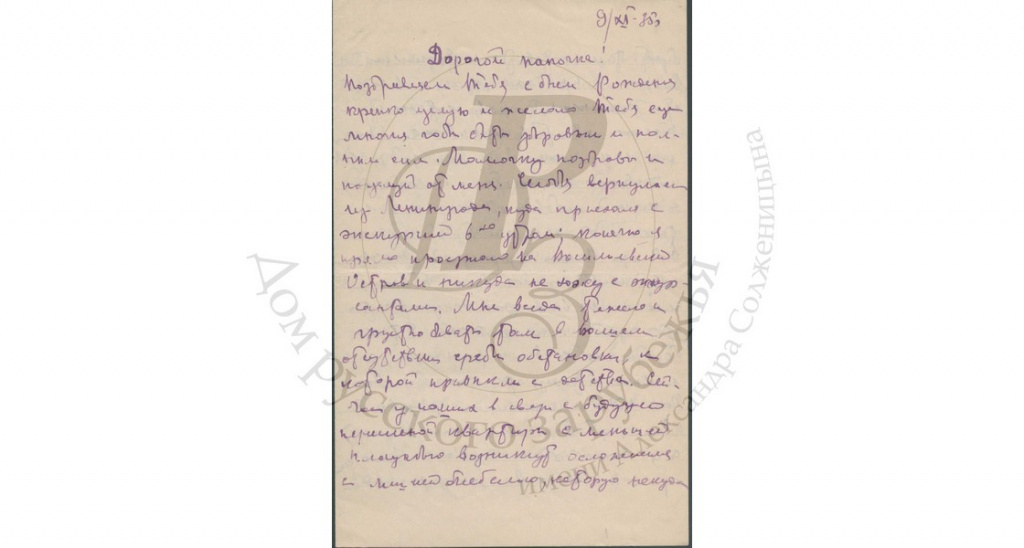 9/XI-35г.
Дорогой папочка!
Поздравляем тебя с днем Рождения
крепко целую и желаю тебе еще
многие годы быть здоровым и пол-
ным сил. Мамочку поздравь и
поцелуй от меня. Сегодня вернулась
из Ленинграда, куда приехала с
экскурсией 6го утром; конечно я
прямо проехала на Васильевский
Остров и никуда не хожу с экскур-
сантами. Мне всегда тяжело и
грустно бывать там в вашем
отсутствии среди обстановки, к
которой привыкли с детства. Сей-
час у наших в связи с будущей
переменой квартиры с меньшей
площадью возникнут осложнения
с лишней мебелью, которую некуда
Дом русского зарубежья
имени Александра Солженицына